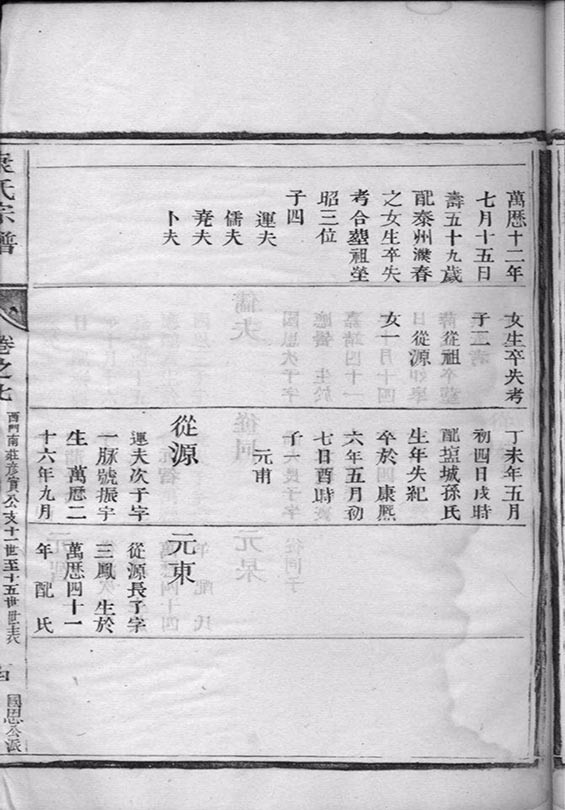 萬厯十二年
七月十五日
壽五十九歲
配泰州濮春
之女生卒失
考合塟祖塋
昭三位
子四
運夫
儒夫
堯夫
卜夫
女生卒失考
子二
從祖
從源
女一
丁未年五月
初四日戌時
配垣城孫氏
生年失紀
卒於康熙
六年五月初
七日酉時
子一
元甫
從源
運夫次子字
一脉號振宇
生萬厯二
十六年九月
元東
從源長子字
三鳳生於
萬厯四十一
年配氏
氏宗譜
卷之七
西門南莊彥實公支十一世至十五世世表
國恩公派